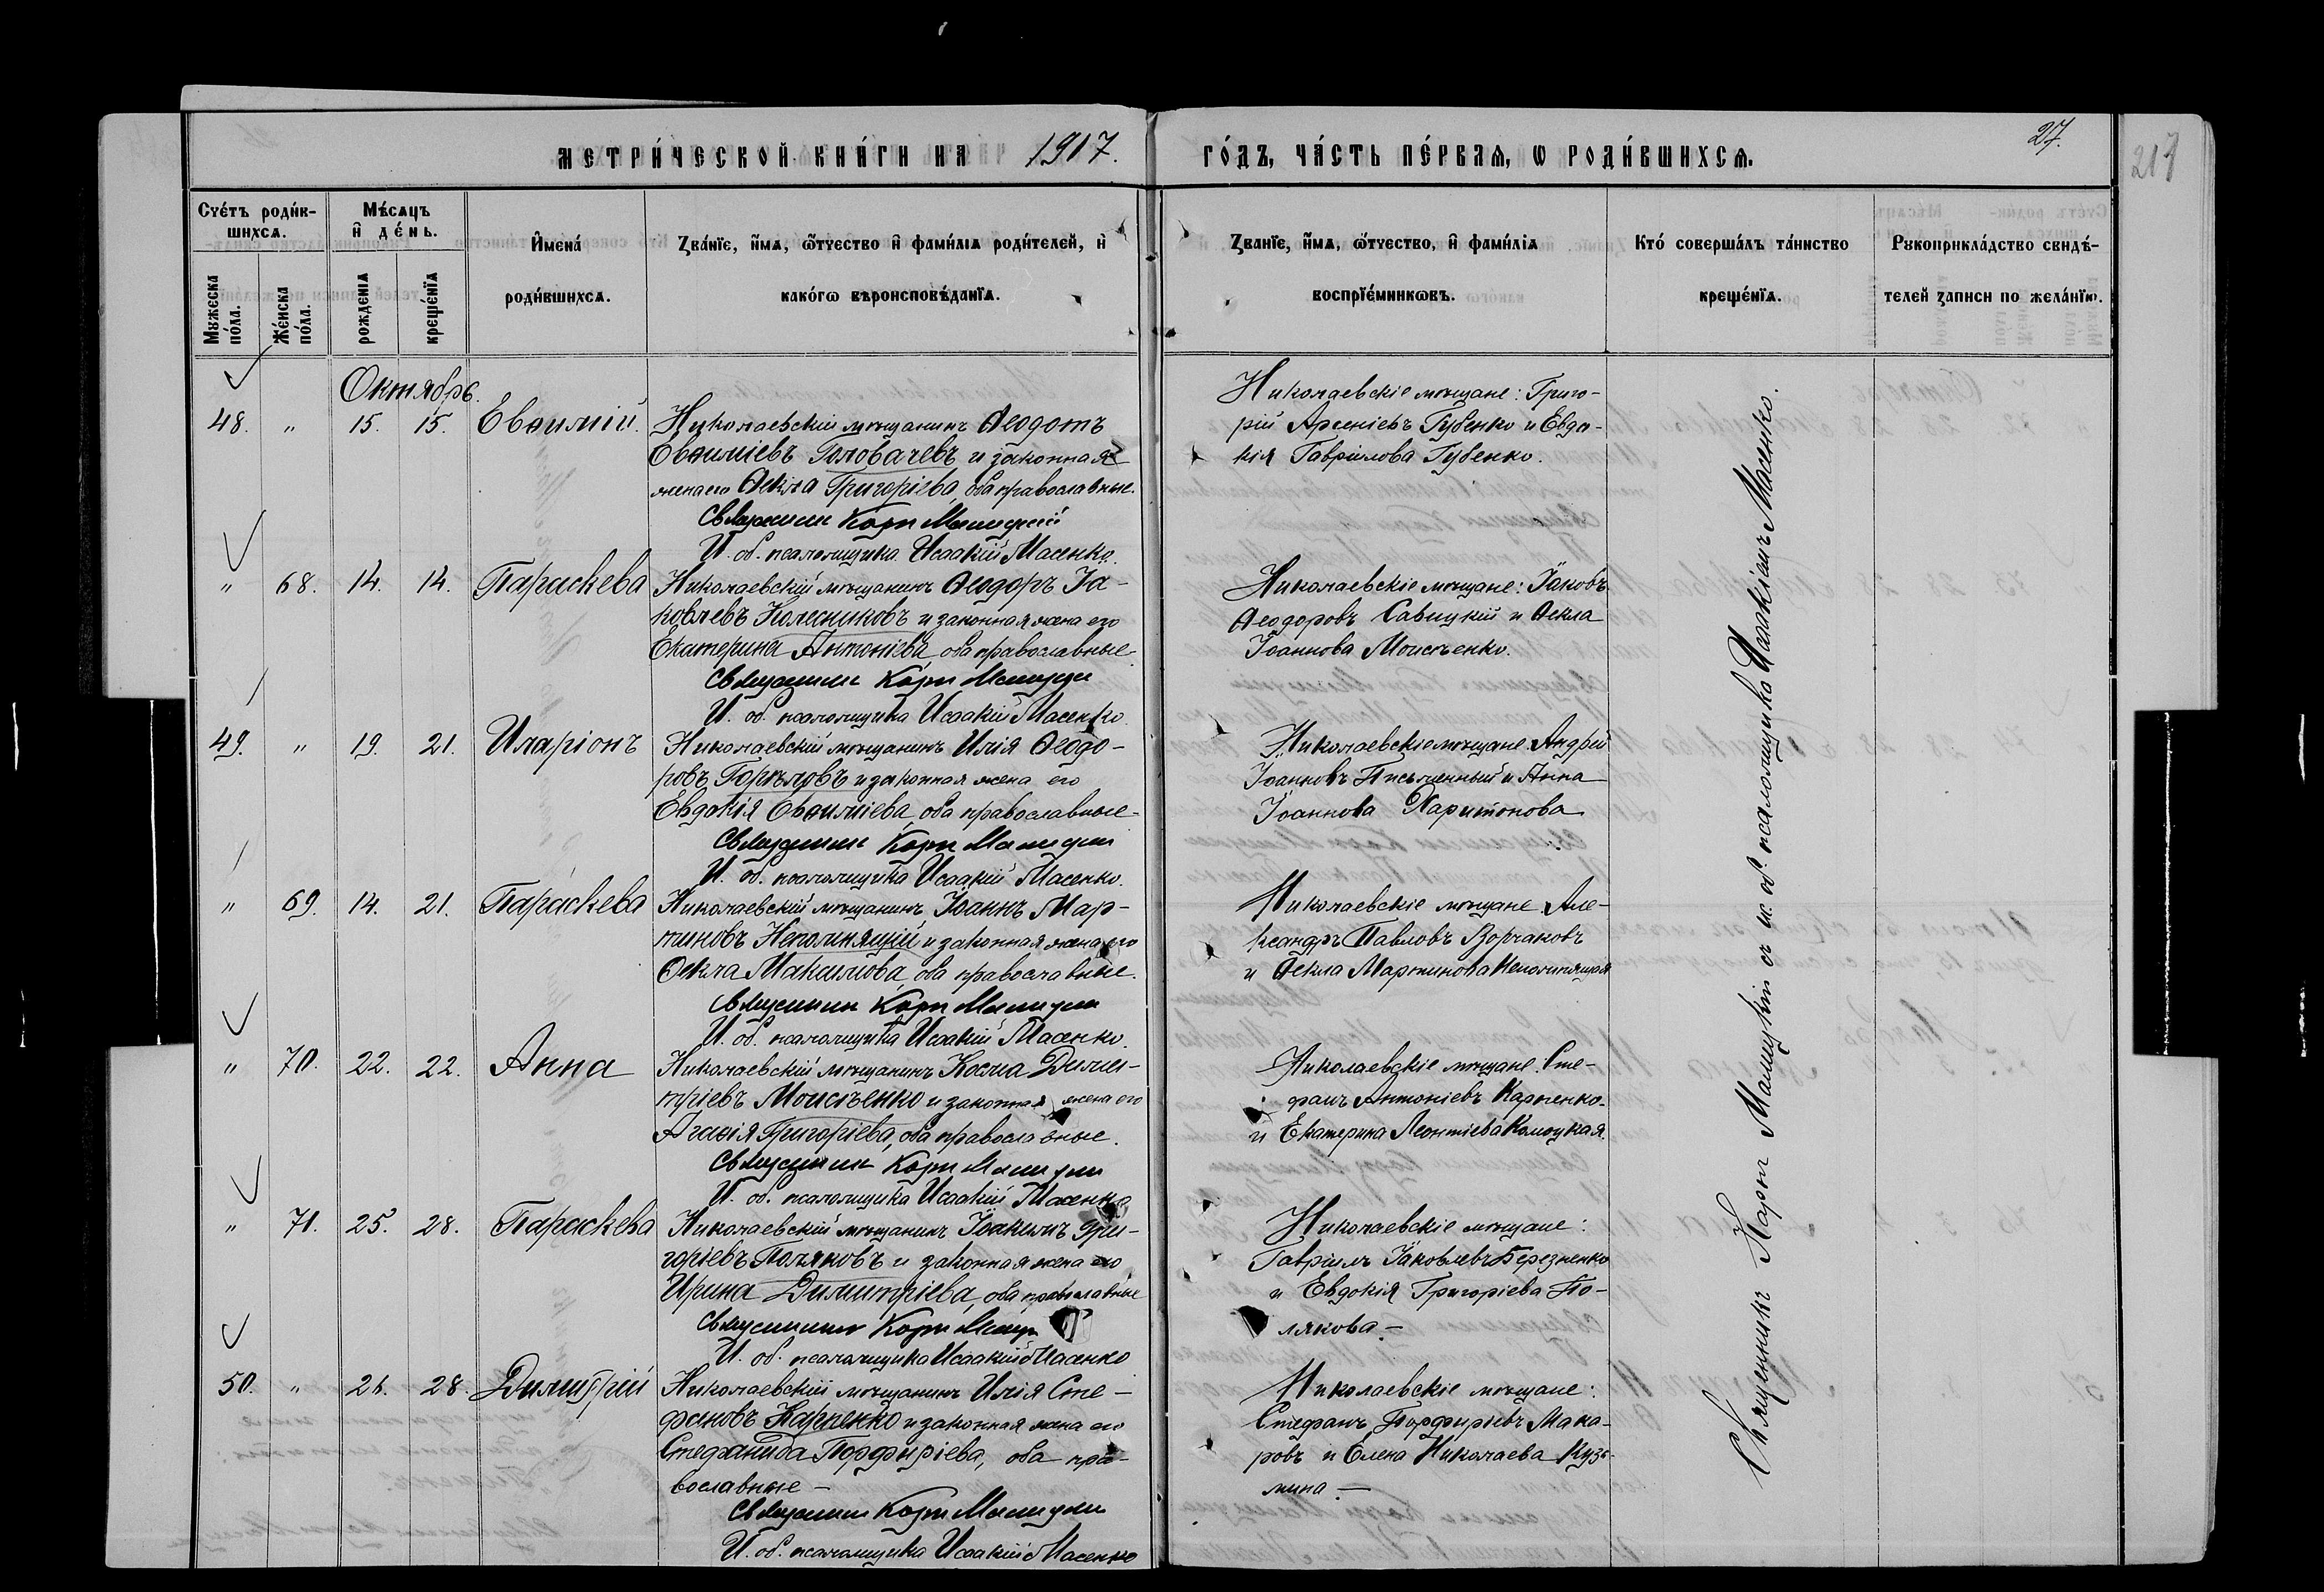 МЕТРИ́ЧЕСКОЙ КНИ́ГИ НА 1917.
ГО́ДЪ, ЧА́СТЬ ПЕ́РВАѦ, Ѡ РОДИ́ВШИХСѦ.
27.
217
Сче́тъ роди́в-
шихсѧ.
Мужеска по́ла.
Же́нска по́ла.
Мѣ́сѧцъ
и҆ де́нь.
рожденїѧ
креще́нїѧ
И҆мена́
роди́вшихсѧ.
Зва́нїе, и҆́мѧ, ѻ҆́тчество и҆ фами́лїѧ роди́телей, и҆
како́гѡ вѣроисповѣ́данїѧ.
Званїе, и҆́мѧ, ѻ҆́тчество, и҆ фами́лїѧ
воспрїе́мникѡвъ.
Кто́ соверша́лъ та́инство
креще́нїѧ.
Рꙋкоприкла́дство свидѣ́-
телей записи по жела́нїю.
Октябрь.
48. " 15. 15. Евѳимій.
Николаевскій мѣщанинъ Ѳеодотъ
Евѳиміевъ Головачевъ и законная
жена его Ѳекла Григоріева, оба православные.
Священникъ Карпъ Малицкій
И. об. псаломщика Исаакій Масенко.
Николаевскіе мѣщане: Григо-
рій Арсеніевъ Губенко и Евдо-
кія Гавріилова Губенко.
" 68. 14. 14. Параскева
Николаевскій мѣщанинъ Ѳеодоръ Іа-
ковлевъ Колесниковъ и законная жена его
Екатерина Антоніева, оба православные.
Священникъ Карпъ Малицкій
И. об. псаломщика Исаакій Масенко.
Николаевскіе мѣщане: Іаковъ
Ѳеодоровъ Савицкій и Ѳекла
Іоаннова Моисѣенко.
49. " 19. 21. Иларіонъ
Николаевскій мѣщанинъ Илія Ѳеодо-
ровъ Горѣловъ и законная жена его
Евдокія Евѳиміева, оба православные
Священникъ Карпъ Малицкій
И. об. псаломщика Исаакій Масенко.
Николаевскіе мѣщане. Андрей
Іоанновъ Письменный и Анна
Іоаннова Харитонова
" 69. 14. 21. Параскева
Николаевскій мѣщанинъ Іоаннъ Мар-
тиновъ Непомнящій и законная жена его
Ѳекла Максимова, оба православные.
Священникъ Карпъ Малицкій
И. об. псаломщика Исаакій Масенко.
Николаевскіе мѣщане. Але-
ксандръ Павловъ
и Ѳекла Мартинова Непомнящая
" 70. 22. 22. Анна
Николаевскій мѣщанинъ Косма Димит-
тріевъ Моисѣенко и законная жена его
Агаѳія Григоріева, оба православные.
Священникъ Карпъ Малицкій
И. об. псаломщика Исаакій Масенко
Николаевскіе мѣщане. Сте-
фанъ Антоніевъ Карпенко
и Екатерина Леонтіева
" 71. 25. 28. Параскева
Николаевскій мѣщанинъ Іоакимъ Гри-
горіевъ Поляковъ и законная жена его
Ирина Димитріева, оба православные
Священникъ Карпъ
И. об. псаломщика Исаакій Масенко
Николаевскіе мѣщане:
Гавріилъ Іаковлевъ Березненко
и Евдокія Григоріева По-
лякова.
50. " 26. 28 Димитрій
Николаевскій мѣщанинъ Илія Сте-
фановъ Карпенко и законная жена его
Стефанида Порфиріева, оба пра-
вославные
Священникъ Карпъ Малицкій
И. об. псаломщика Исаакій Масенко
Николаевскіе мѣщане:
Стефанъ Порфиріевъ Мака-
ровъ и Елена Николаева Кузь-
мина.
Священникъ Карпъ Малицкій съ и. об. псаломщика Исаакіемъ Масенко.